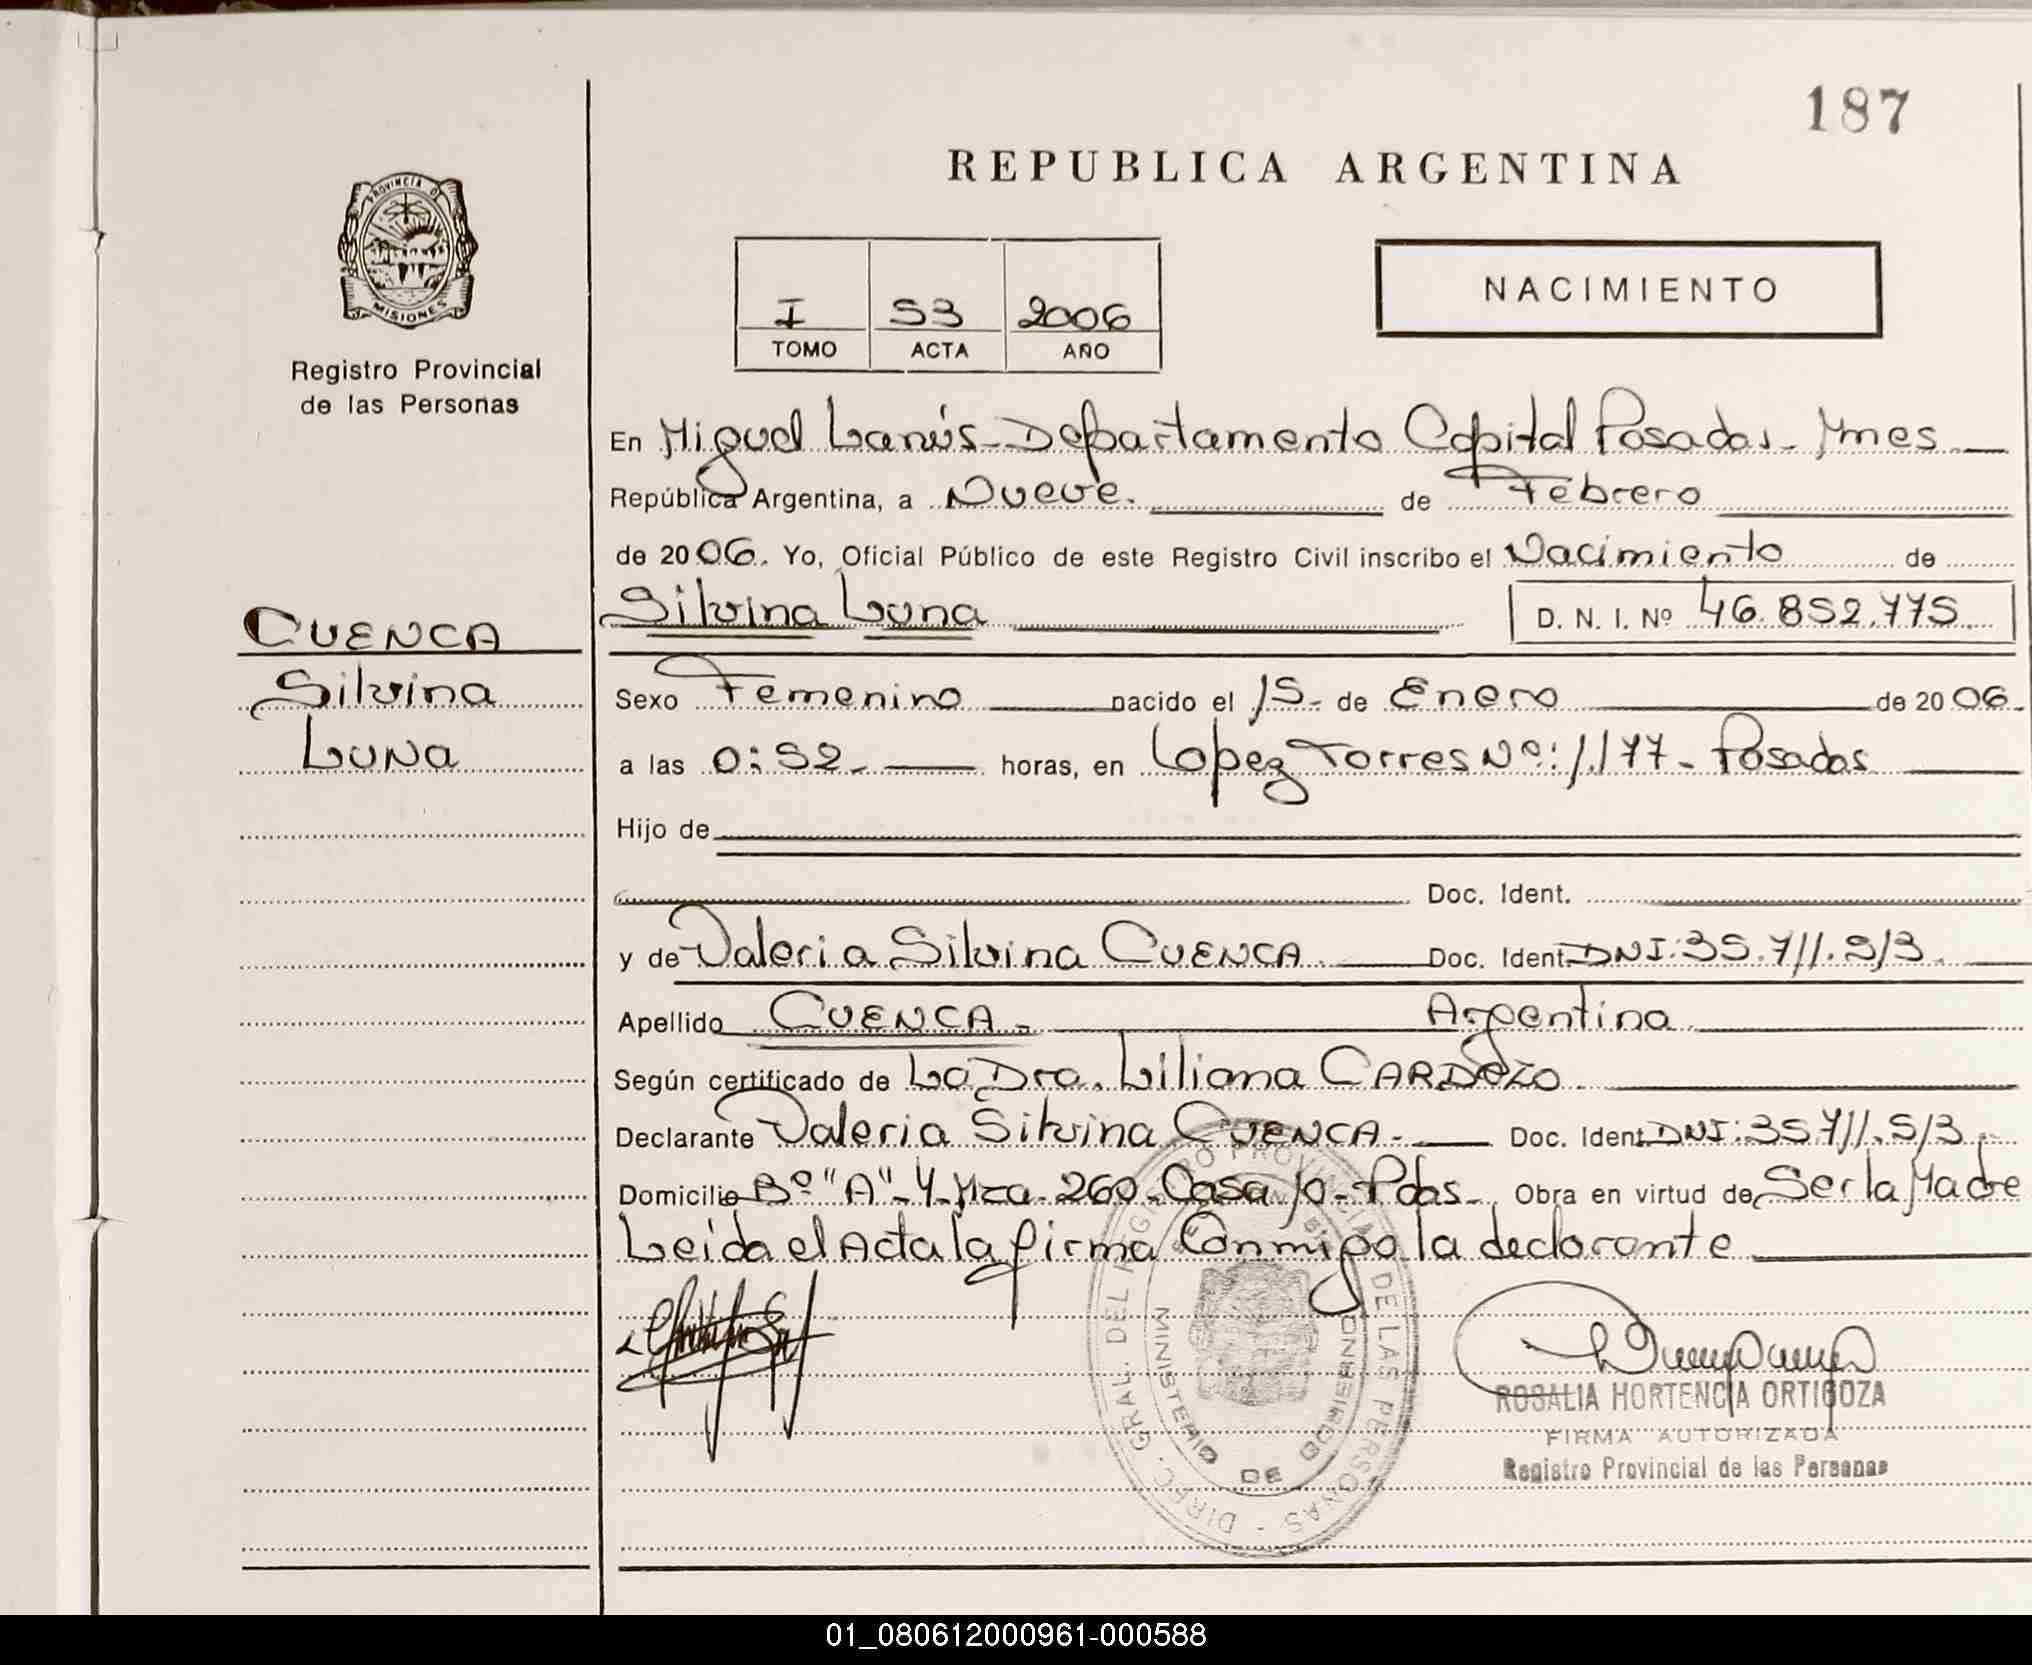 187
REPUBLICA ARGENTINA
PROVINCIA DE
MISIONES
Registro Provincial
de las Personas
I S3 2006
TOMO ACTA AÑO
NACIMIENTO
En Miguel Lanús - Departamento Capital Posadas - Mnes
República Argentina, a Nueve. de Febrero
de 2006. Yo, Oficial Público de este Registro Civil inscribo el Nacimiento de
Silvina Luna D. N. I. Nº 46.852.775
CUENCA
Silvina
Luna
Sexo Femenino nacido el 15 - de Enero de 2006
a las 0:52 - horas, en Lopez Torres Nº: 1.177 - Posadas
Hijo de
Doc. Ident.
y de Valeria Silvina CUENCA Doc. Ident. DNI: 35.711.513
Apellido CUENCA - Argentina
Según certificado de La Dra. Liliana CARDOZO
Declarante Valeria Silvina CUENCA - Doc. Ident. DNI: 35.711.513 -
Domicilio Bº "A" - 4 - Mza - 260 - Casa 10 - Pdas - Obra en virtud de Ser la Madre
Leida el Acta la firma Conmigo la declarante
DIREC. GRAL. DEL REGISTRO PROVINCIAL DE LAS PERSONAS
MINISTERIO DE GOBIERNO
ROSALIA HORTENCIA ORTIGOZA
FIRMA AUTORIZADA
Registro Provincial de las Personas
01_080612000961-000588